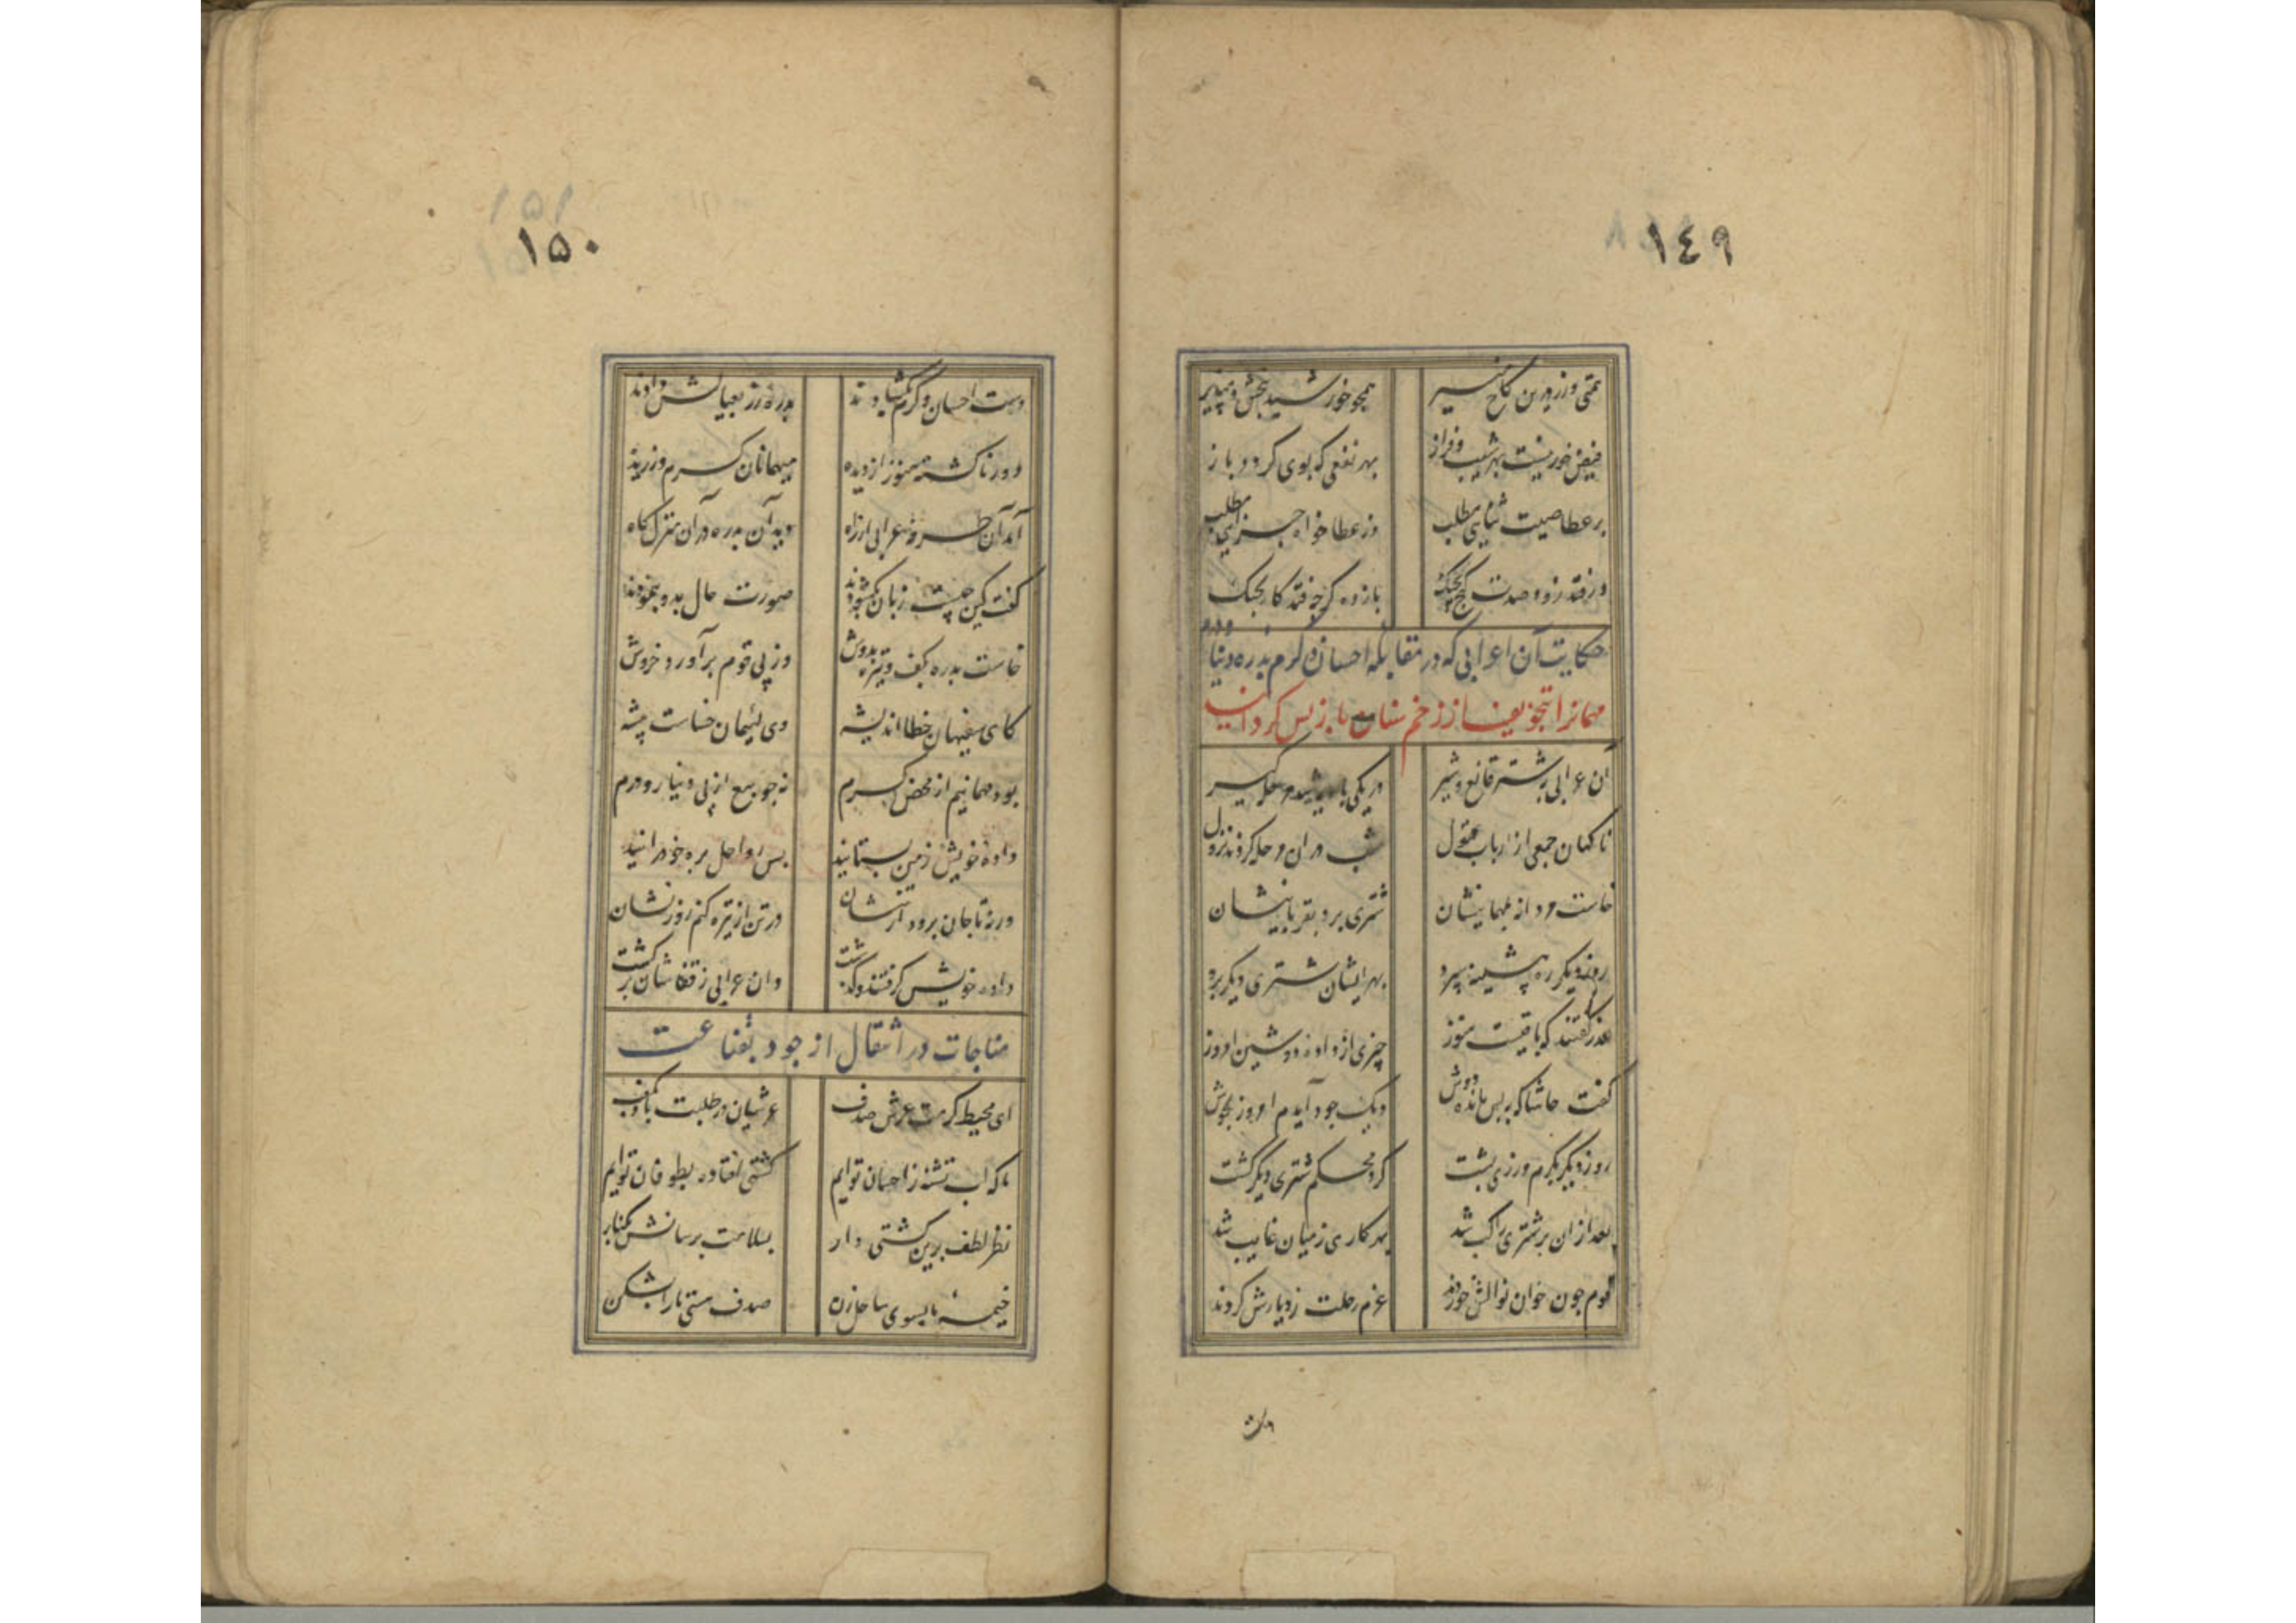 ١٤٩
همتی ورز درین کاخ
همچو خورشید ببخش و مپذیر
فیض خور نیست بهر شیب و فراز
بهر نفعی که بوی کردد باز
بر عطا صیت ثنایی مطلب
وز عطا خواه جزایی مطلب
بازده کر چه فتد کار بجنک
حکایت آن اعرابی که در مقابله احسان و کرم بدره دینار و درم
مهمانرا بتخویف از زخم سنان باز پس کردانید
آن عرابی بشتر قانع و شیر
در یکی بادیه شد مرحله کیر
ناکهان جمعی از ارباب قبول
شب در آن مرحله کردند نزول
خاست مردانه بمهمانیشان
شتری برد بقربانیشان
روز دیکر ره پیشینه سپرد
بهر ایشان شتری دیکر برد
عذر کفتند که باقیست هنوز
چیزی از داده دوشین امروز
کفت حاشا که ز پس مانده دوش
دیک جود آیدم امروز بجوش
روز دیکر بکرم ورزی پشت
کرد محکم شتری دیکر کشت
بعد از آن بر شتری راکب شد
بهر کاری ز میان غایب شد
قوم چون خوان نوالش خوردند
عزم رحلت ز دیارش کردند
١٥٠
دست احسان و کرم بکشادند
بدره زر بعیالش دادند
دور ناکشته هنوز از دیده
میهمانان کرم ورزیده
آمد آن طرفه عرابی از راه
دید آن بدره در آن منزلکاه
کفت کین چیست زبان بکشودند
صورت حال بدو بنمودند
خاست بدره بکف و نیزه بدوش
وز پی قوم برآورد خروش
کای سفیهان خطا اندیشه
وی لئیمان خساست پیشه
بود مهمانیم از محض کرم
نه چو بیع از پی دینار و درم
داده خویش ز من بستانید
پس رواحل بره خود رانید
ورنه تا جان برود از تنشان
در تن از نیزه کنم روزنشان
داده خویش کرفتند و کذشت
وان عرابی ز قفاشان برکشت
مناجات در انتقال از جود بقناعت
ای محیط کرمت عرش صدف
عرشیان در طلبت باد بکف
ما که لب تشنه ز احسان توایم
کشتی افتاده بطوفان توایم
نظر لطف برین کشتی دار
بسلامت برسانش بکنار
خیمه ما بسوی ساحل زن
صدف هستی ما را بشکن